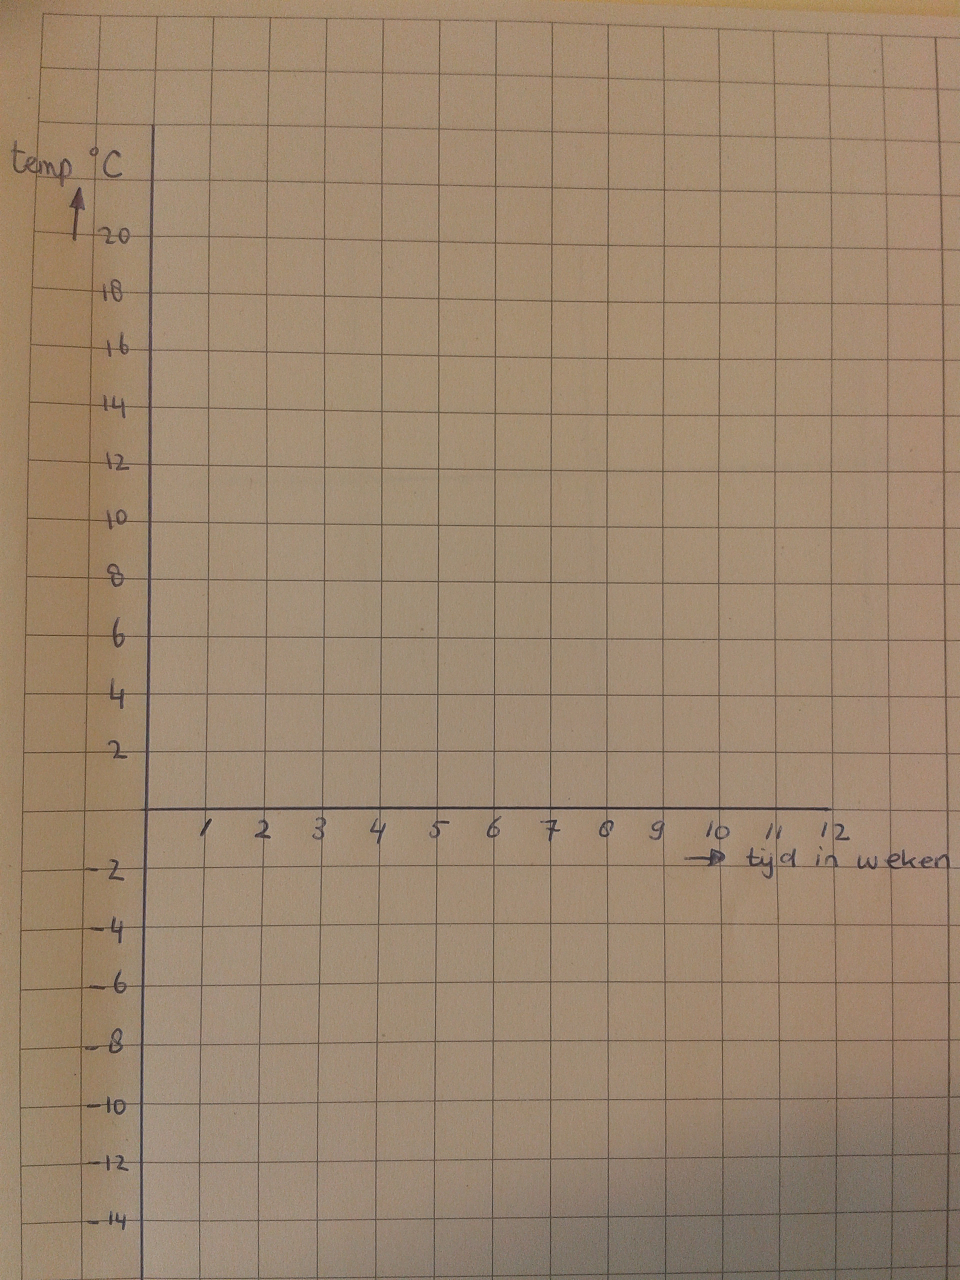 temp °C
20
18
16
14
12
10
8
6
4
2
1 2 3 4 5 6 7 8 9 10 11 12
tijd in weken
-2
-4
-6
-8
-10
-12
-14